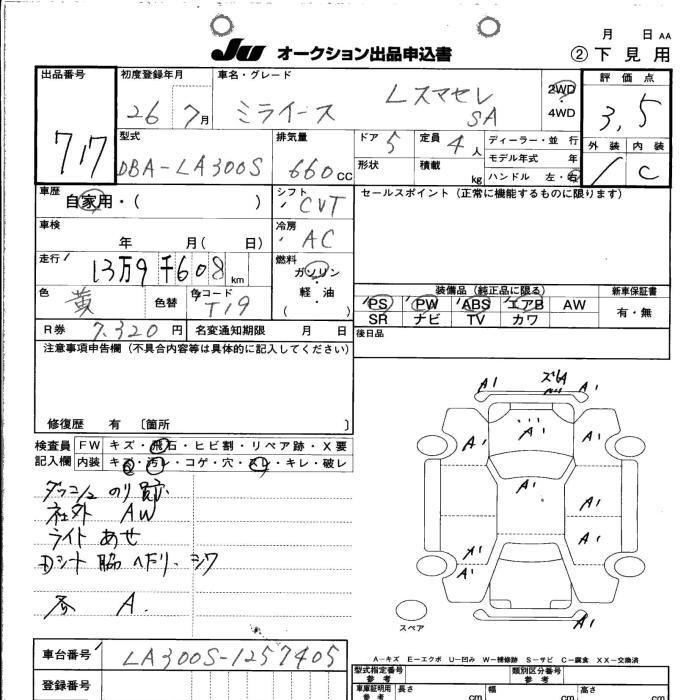 月 日 AA
JU オークション出品申込書 ②下見用
出品番号 717
初度登録年月 26 7月
車名・グレード ミライース Lスマセレ SA
2WD・4WD
評価点 3,5
外装 内装 C
型式 DBA-LA300S
排気量 660cc
ドア 5
定員 4人
形状
積載 kg
ディーラー・並行
モデル年式 年
ハンドル 左・右
車歴 自家用・( )
シフト CVT
セールスポイント(正常に機能するものに限ります)
車検 年 月( 日)
冷房 AC
走行 13万9千608km
燃料 ガソリン・軽油( )
色 黄 色替 色コード T19
装備品(純正品に限る)
PS PW ABS エアB AW
SR ナビ TV カワ
新車保証書 有・無
R券 7.320円 名変通知期限 月 日
後日品
注意事項申告欄(不具合内容等は具体的に記入してください)
修復歴 有 〔箇所 〕
検査員記入欄
FW キズ・飛石・ヒビ割・リペア跡・X要
内装 キズ・汚レ・コゲ・穴・スレ・キレ・破レ
ダッシュ のり跡
社外 AW
ライト あせ
Dシート 脇 ヘタリ・シワ
各 A.
A1 ズレA A1
A1 A1 A1
A1
A1
A1 A1
A1
A1
スペア
A-キズ E-エクボ U-凹み W-補修跡 S-サビ C-腐食 XX-交換済
車台番号 LA300S-1257405
登録番号
型式指定番号 参考
類別区分番号 参考
車庫証明用 参考 長さ cm 幅 cm 高さ cm